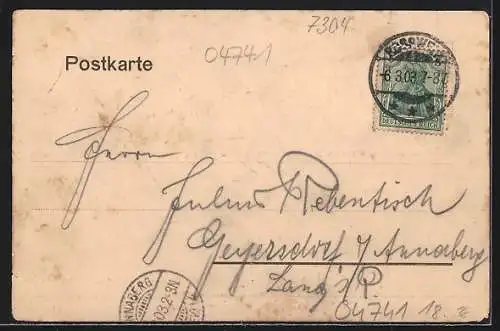 7304
04741
Postkarte
-6.3.03.7-8V.
DEUTSCHES REICH
Herrn
Julius Rebentisch
Geyersdorf / Annaberg
04741 18.
NNABERG
.03.2-3N.